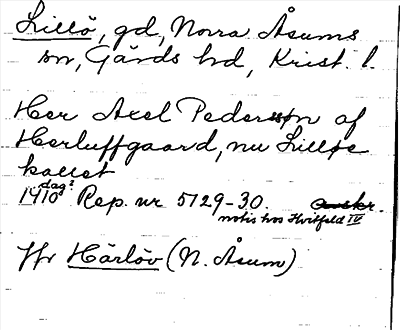 Lillö, gd, Norra Åsums
sn, Gärds hd, Krist. l.
Her Axel Pederssøn af
Herluffgaard, nu Lilløe
kallet
1410 dag? Rep. nr 5729-30. avskr.
notis hos Hvitfeld IV
Jfr Härlöv (N. Åsum)